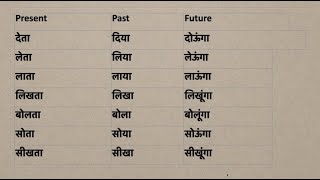 Present Past Future
देता दिया दोऊंगा
लेता लिया लेऊंगा
लाता लाया लाऊंगा
लिखता लिखा लिखूंगा
बोलता बोला बोलूंगा
सोता सोया सोऊंगा
सीखता सीखा सीखूंगा